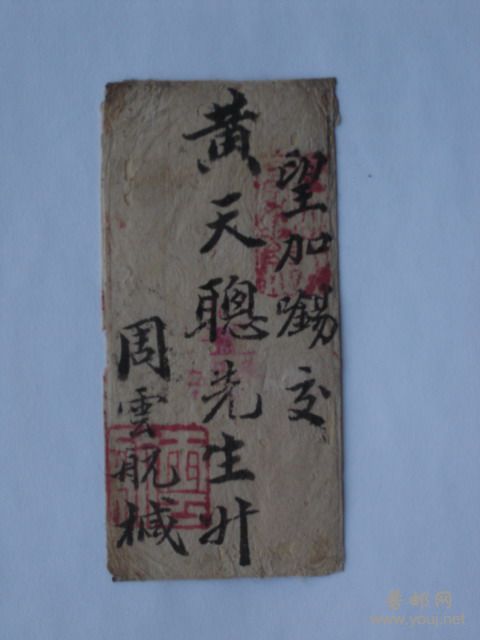 望加錫交
黃天聰先生升
周雲航械
墓邮网
www.youj.net